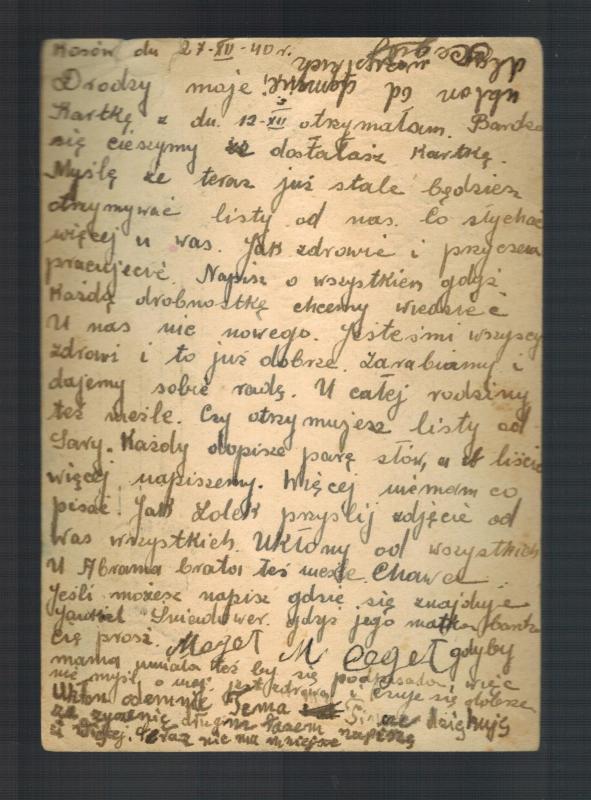 Kosów dn 27-XII-40 r.
Drodzy moje!
Kartkę z dn. 12-XII otrzymałam. Bardzo
się cieszymy że dostałaś kartkę.
Myślę że teraz już stale będziesz
otrzymywać listy od nas. Co słychać
więcej u was. Jak zdrowie i przyczem
pracujecie. Napisz o wszystkiem gdyż
każdą drobnostkę chcemy wiedzieć
U nas nic nowego. Jesteśmi wszyscy
zdrowi i to już dobrze. Zarabiamy i
dajemy sobie radę. U całej rodziny
też nieźle. Czy otrzymujesz listy od
Sary. Każdy dopisze parę słów, a w liście
więcej napiszemy. Więcej niemam co
pisać. Jak Lolek przyślij zdjęcie od
was wszystkich. Ukłony od wszystkich
U Abrama brata też nieźle Chawa
Jeśli możesz napisz gdzie się znajduje
Śniadower. gdyż jego matka bardz
cię prosi.
gdyby
mama umiała też by się podpisała więc
nie myśl o niej jest zdrowa i czuje się dobrze
Ukłon odemnie Fema dziękuję
za życzenie drugim razem napiszę
ci więcej. teraz nie ma miejsce